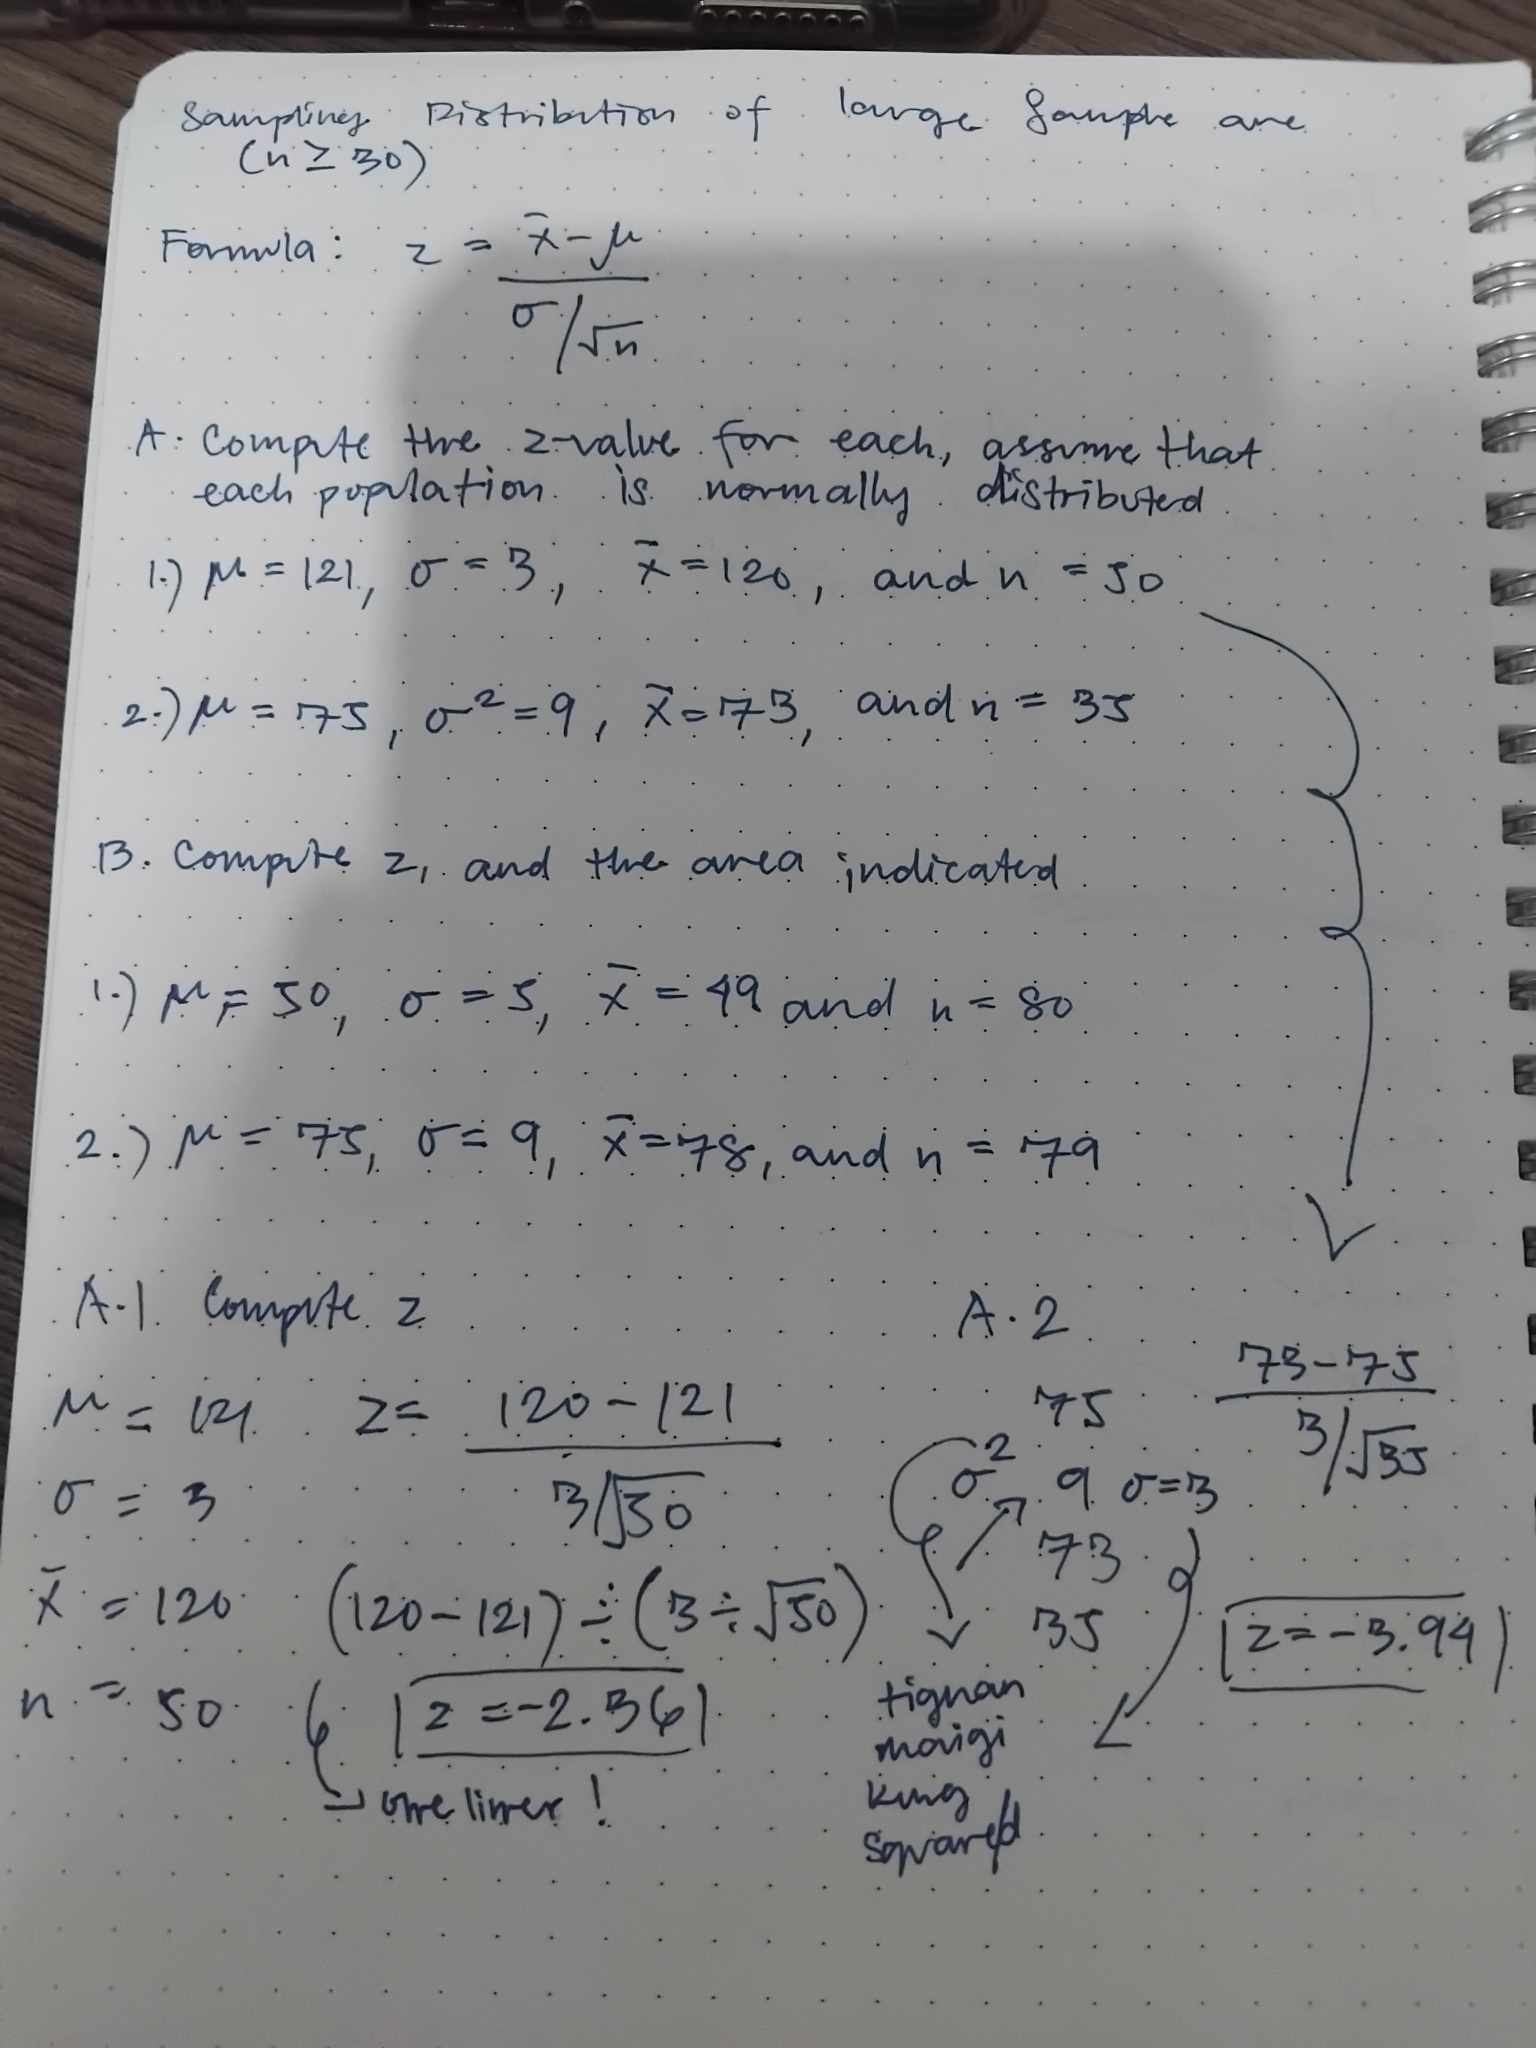 Sampling Distribution of large Sample are
(n ≥ 30)
Formula: z = x̄ - μ
σ/√n
A. Compute the z-value for each, assume that
each population is normally distributed
1.) μ = 121, σ = 3, x̄ = 120, and n = 50
2.) μ = 75, σ² = 9, x̄ = 73, and n = 35
B. Compute z, and the area indicated
1.) μ = 50, σ = 5, x̄ = 49 and n = 80
2.) μ = 75, σ = 9, x̄ = 78, and n = 79
A.1. Compute z
μ = 121 z = 120 - 121
σ = 3 3/√50
x̄ = 120 (120 - 121) ÷ (3 ÷ √50)
n = 50 z = -2.36
one liner!
A.2
75 73 - 75
σ² 9 σ = 3 3/√35
73
35 z = -3.94
tignan
maigi
kung
squared